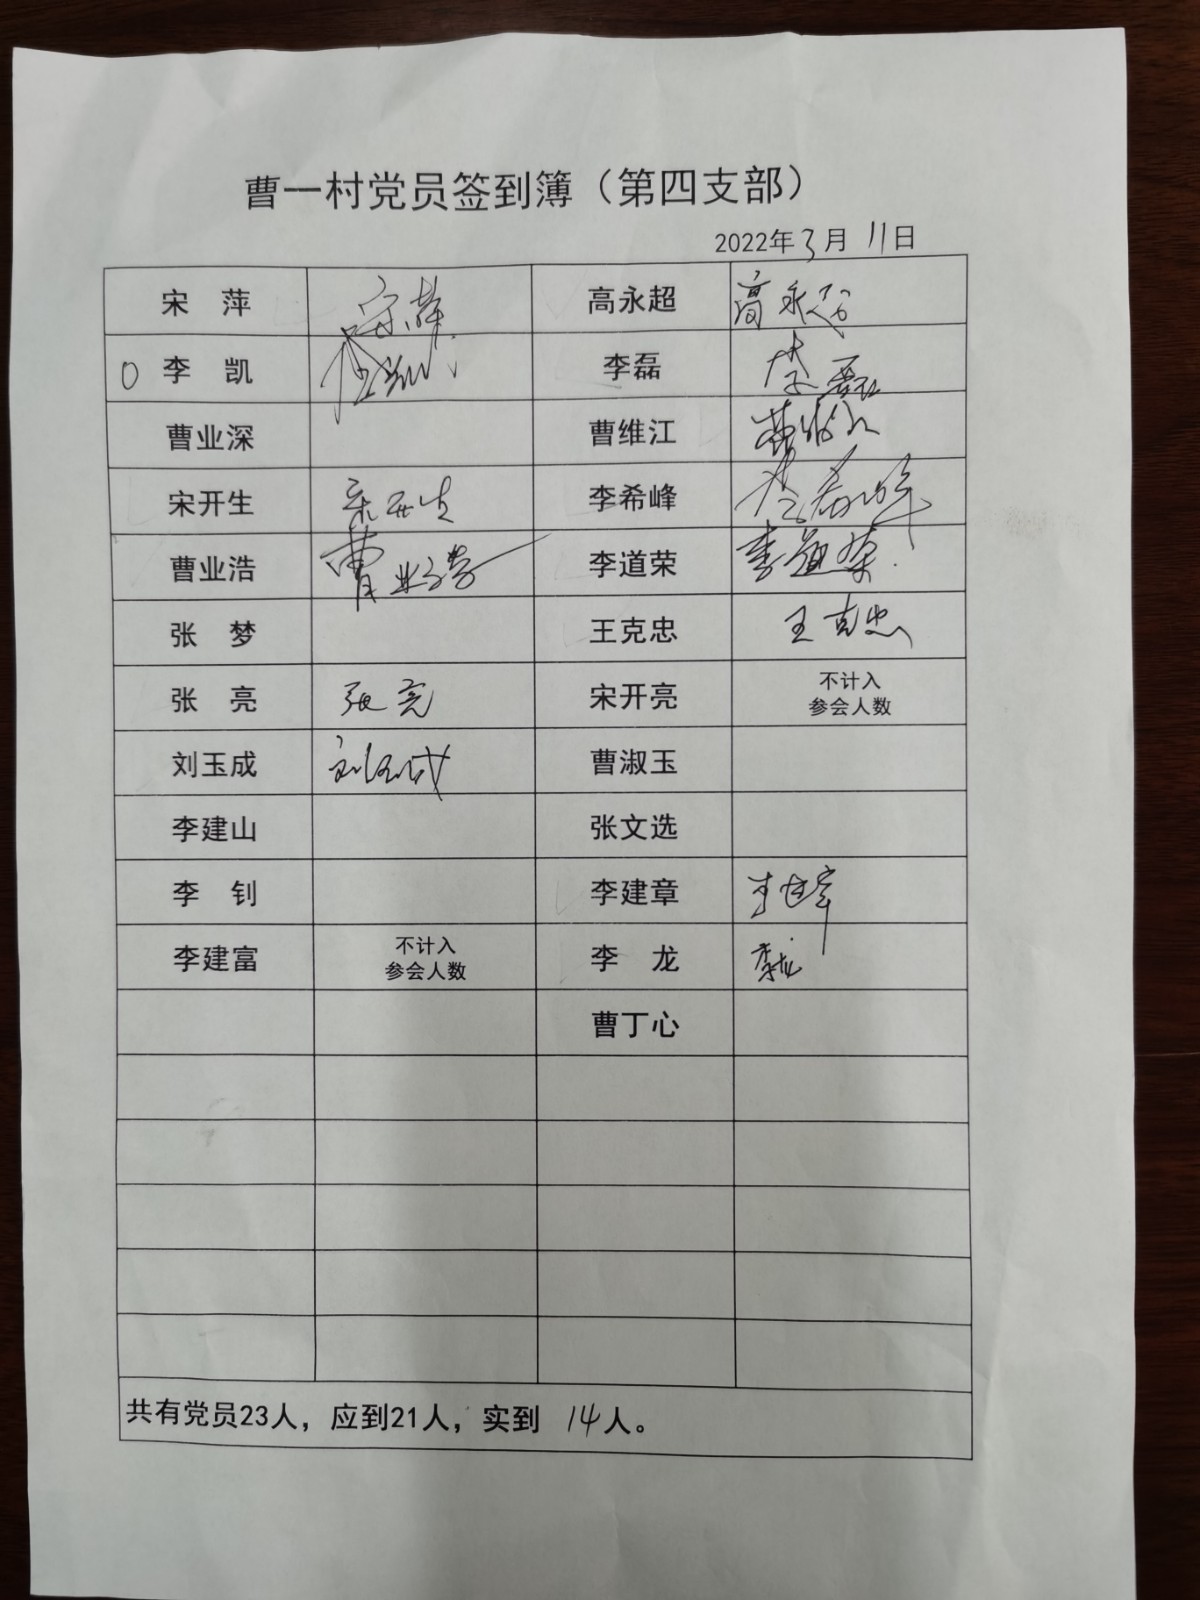 曹一村党员签到簿（第四支部）
2022年3月11日
宋　萍 宋萍 高永超 高永超
O 李　凯 李磊 李磊
曹业深 曹维江 曹维江
宋开生 宋开生 李希峰 李希峰
曹业浩 曹业浩 李道荣 李道荣
张　梦 王克忠 王克忠
张　亮 张亮 宋开亮 不计入
参会人数
刘玉成 刘玉成 曹淑玉
李建山 张文选
李　钊 李建章 李建章
李建富 不计入
参会人数 李　龙 李龙
曹丁心
共有党员23人，应到21人，实到 14人。